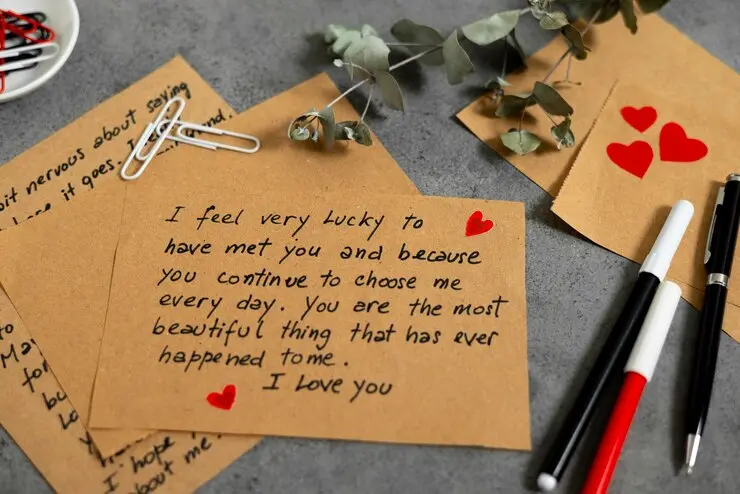 bit nervous about saying
it goes. I
I feel very Lucky to
have met you and because
you continue to choose me
every day. You are the most
beautiful thing that has ever
happened to me.
I Love you
to
Ma
for
bu
Lo
I hope
about me.